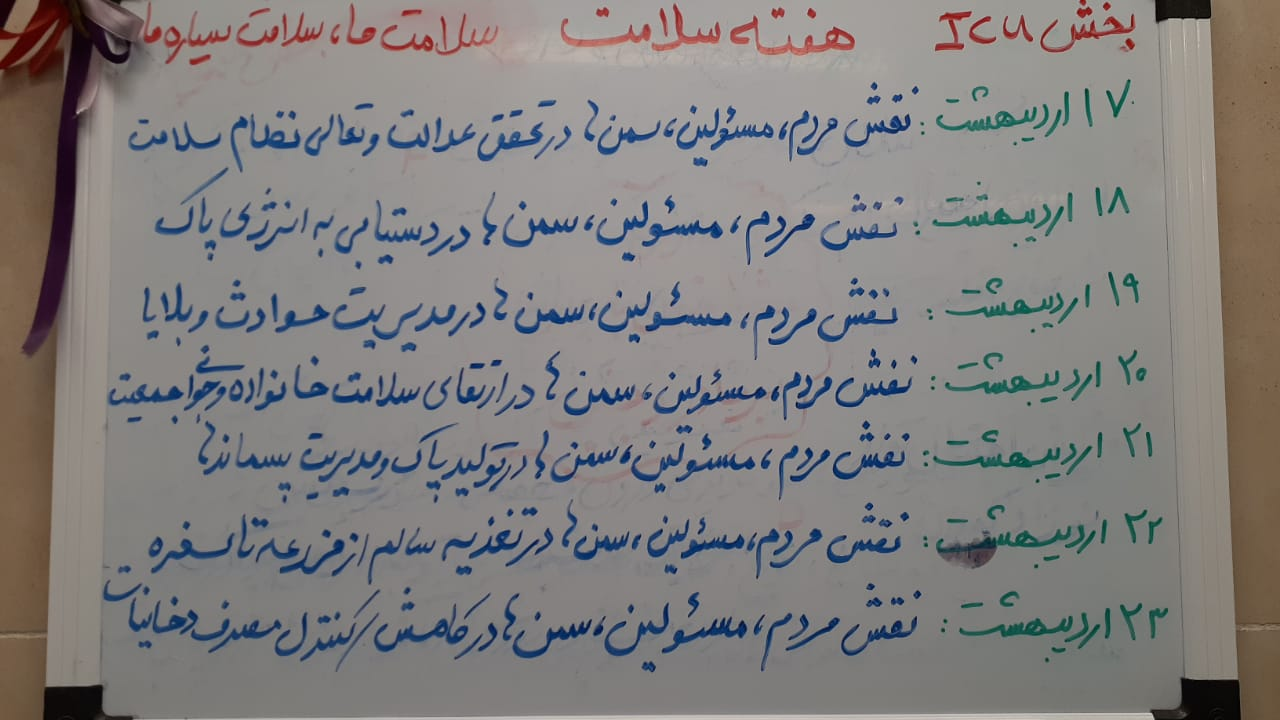 بخش ICU هفته سلامت سلامت ما، سلامت سیاره ما
۱۷ اردیبهشت: نقش مردم، مسئولین، سمن ها در تحقق عدالت و تعالی نظام سلامت
۱۸ اردیبهشت: نقش مردم، مسئولین، سمن ها در دستیابی به انرژی پاک
۱۹ اردیبهشت: نقش مردم، مسئولین، سمن ها در مدیریت حوادث و بلایا
۲۰ اردیبهشت: نقش مردم، مسئولین، سمن ها در ارتقای سلامت خانواده و جوانی جمعیت
۲۱ اردیبهشت: نقش مردم، مسئولین، سمن ها در تولید پاک و مدیریت پسماندها
۲۲ اردیبهشت: نقش مردم، مسئولین، سمن ها در تغذیه سالم از مزرعه تا سفره
۲۳ اردیبهشت: نقش مردم، مسئولین، سمن ها در کاهش/کنترل مصرف دخانیات